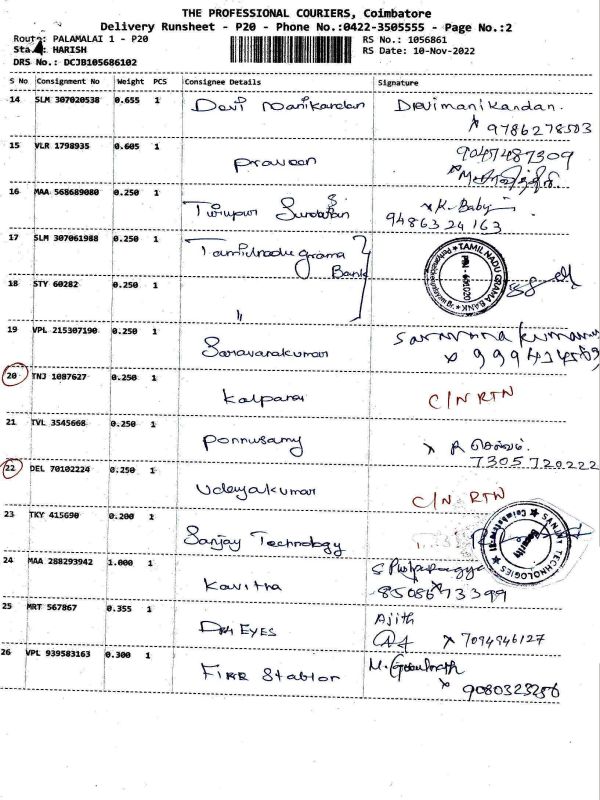 THE PROFESSIONAL COURIERS, Coimbatore
Delivery Runsheet - P20 - Phone No.:0422-3505555 - Page No.:2
Route: PALAMALAI 1 - P20 RS No.: 1056861
HARISH RS Date: 10-Nov-2022
DRS No.: DCJB105686102
S No Consignment No Weight PCS Consignee Details Signature
14 SLM 307020538 0.655 1 Devi Manikandan Devimanikandan.
9786278503
15 VLR 1798935 0.605 1 Praveen 9047487309
16 MAA 568689080 0.250 1 Tirupur Sundaran K. Baby
9486324163
17 SLM 307061988 0.250 1 Tamilnadu grama Bank
TAMIL NADU GRAMA BANK
18 STY 60282 0.250 1 "
19 VPL 215307190 0.250 1 Saravanakumar
20 TNJ 1087627 0.250 1 Kalpana C/N RTN
21 TVL 3545668 0.250 1 Ponnusamy
7305720222
22 DEL 70102224 0.250 1 Udayakumar C/N RTN
23 TKY 415690 0.200 1 Sanjay Technology
SANJAY TECHNOLOGIES Security
24 MAA 288293942 1.000 1 Kavitha
8508673399
25 MRT 567867 0.355 1 EYES Ajith
7094946127
26 VPL 939583163 0.300 1 Fire Station
9080323256